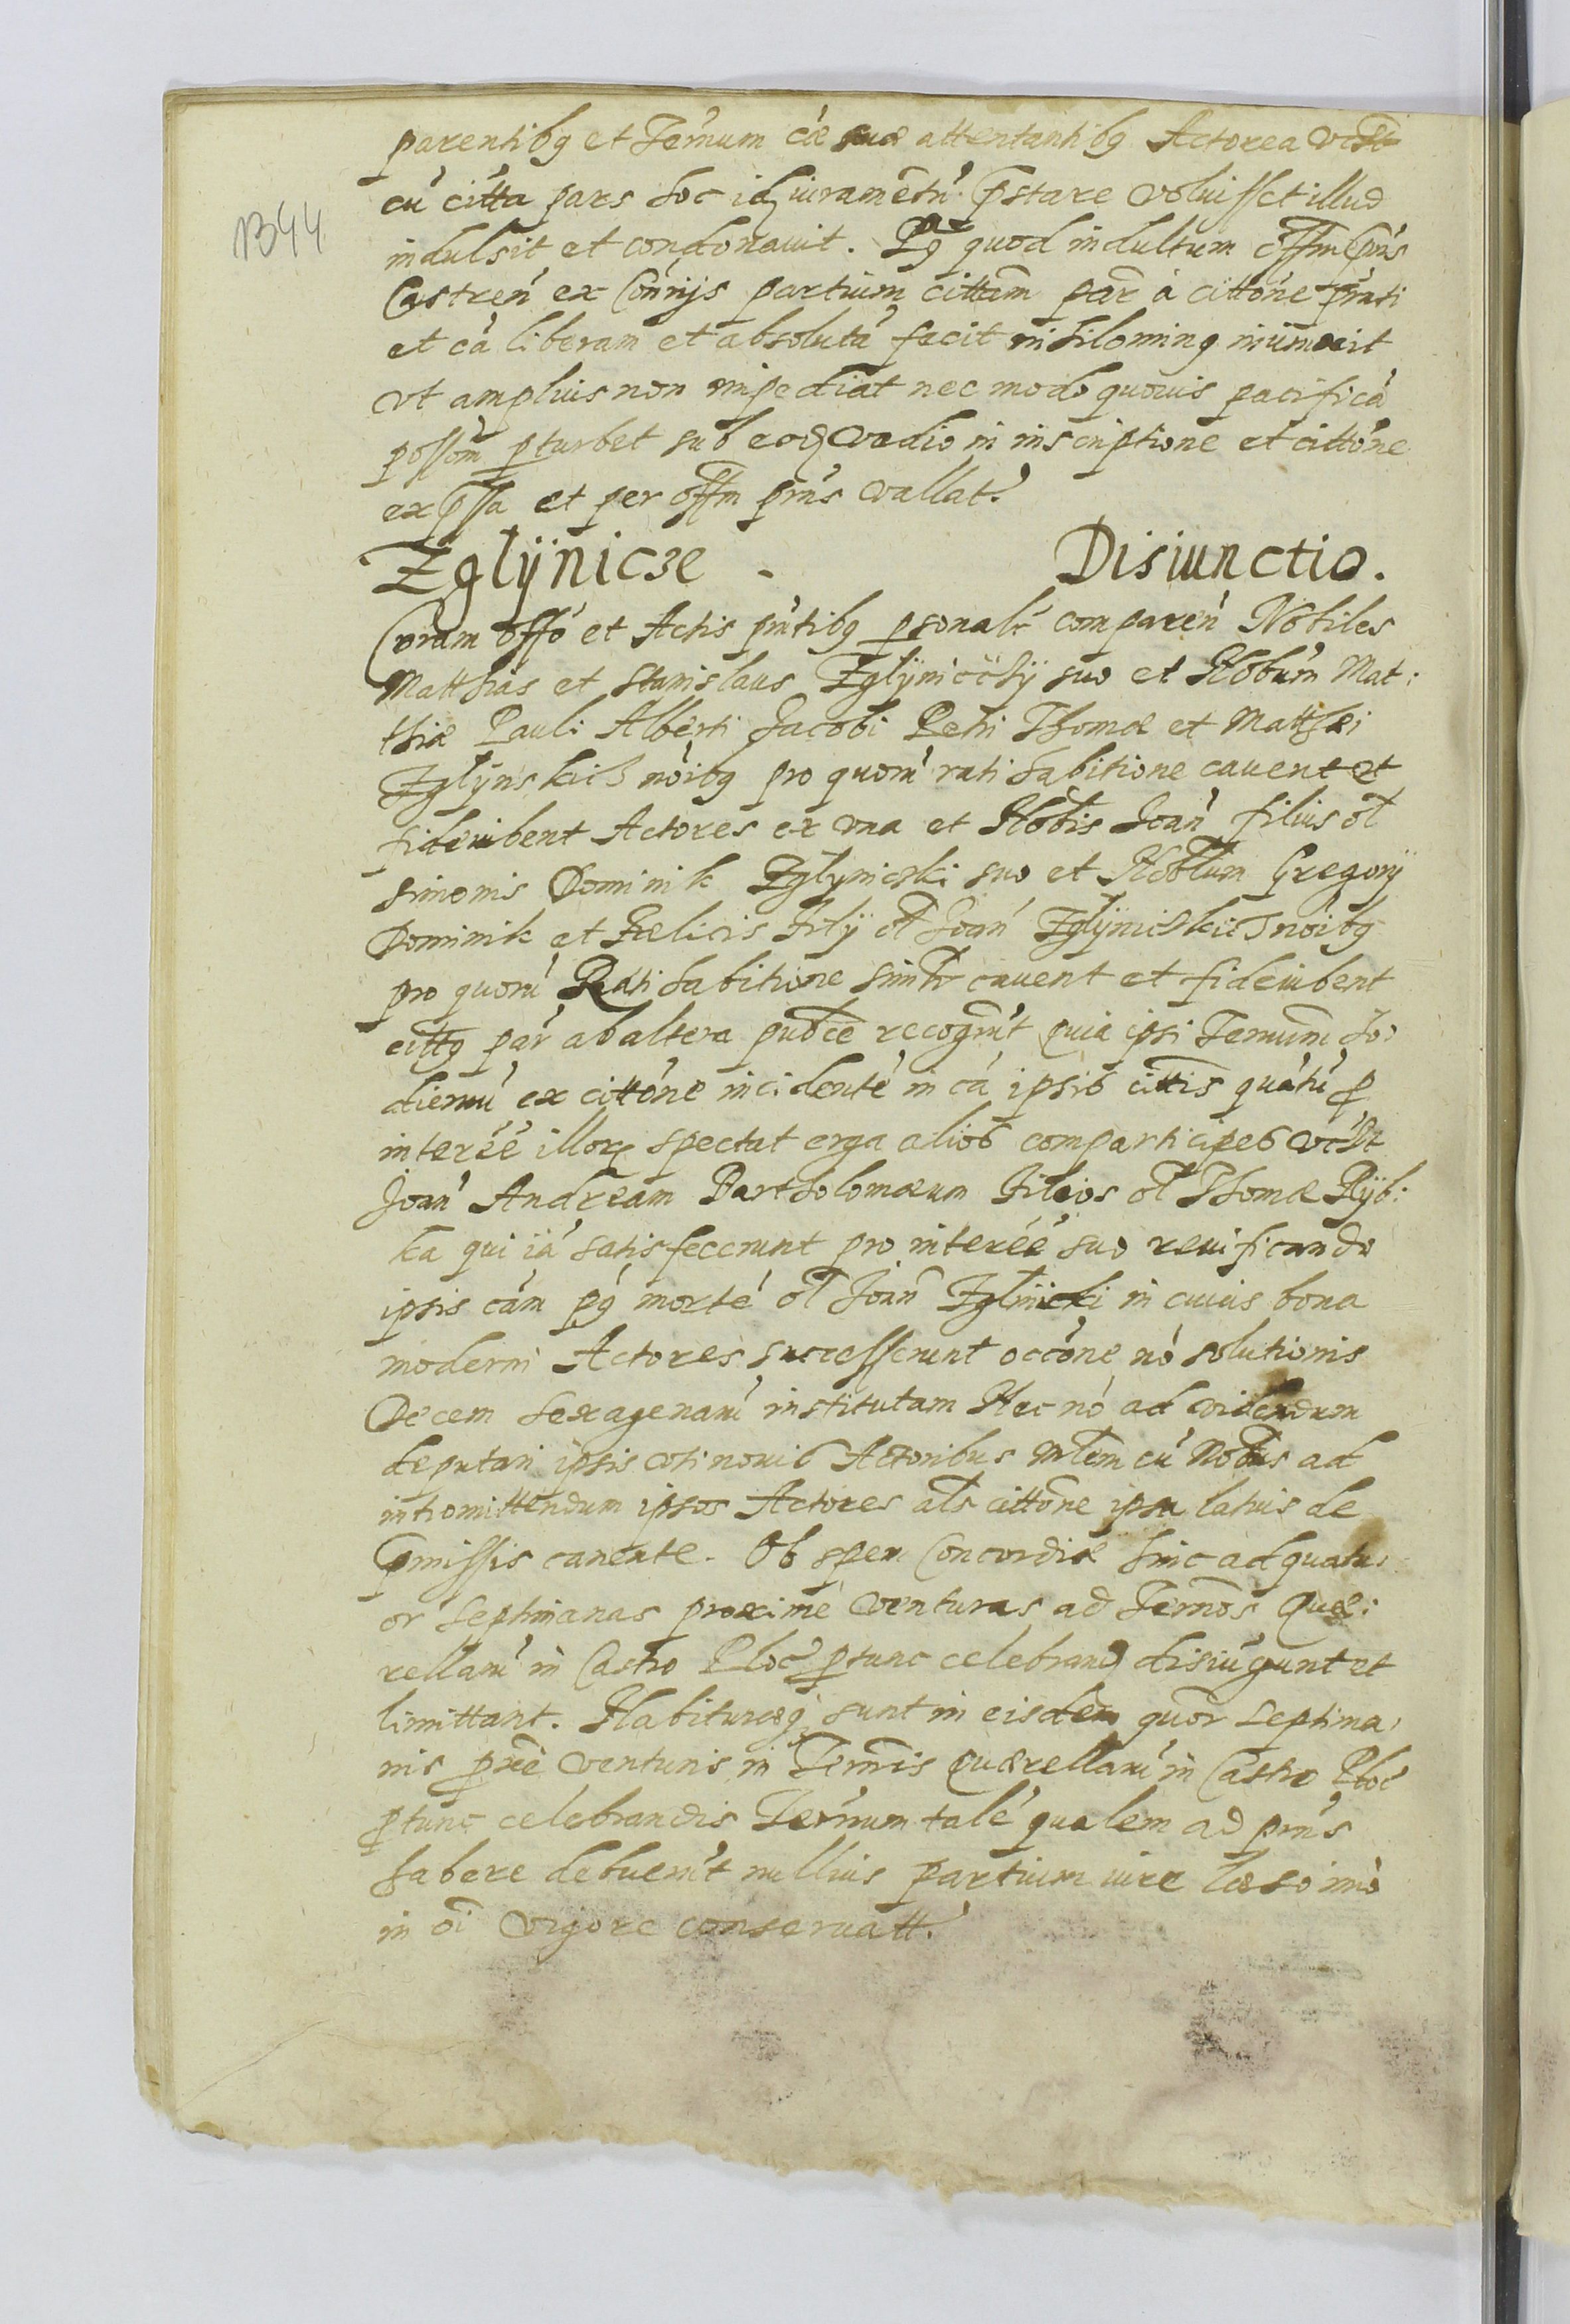 1344
parentibq et Termum cae suae attentantibq Actorea videt
cu citta pars hoc idq iurametu pstare voluisset illud
indulsit et condonavit. Pq quod indultum offm pns
Castren ex Connijs partium cittam par a cittone pnti
et ca liberam et absoluta facit nihilominq iniunxit
vt amplius non impediat nec modo quovis pacifica
possom pturbet sub eod vadio in inscriptione et cittone
expssa et per offm pns vallat.
Zglÿnicze - Disiunctio.
Coram offo et Actis pntibq psonalr comparen Nobiles
Matthias et Stanislaus Zglÿniccsÿ suo et Nobum Mat:
thiae Pauli Alberti Jacobi Petri Thomae et Matthaei
Zglÿnskich noibq pro quoru rati habitione cavent et
fideiubent Actores ex una et Nobis Joan filius ol
Simonis Dominik Zglynicski suo et Noblum Gregorÿ
Dominik et Faelicis filÿ ol Joan Zglÿnickich noibq
pro quoru Rati habitione simlr cavent et fideiubent
cittq par ab altera publce recognrut quia ipsi Termum ho-
diernu ex cittone incidente in ca ipsis cittis quatu p
interee illorq spectat erga alios comparticipes vidt
Joan Andream Bartholomaeum Filios ol Thomae Rÿb:
ka qui ia satisfecerunt pro interee suo revificando
ipsis cam pq morte ol Joan Zglinicki in cuius bona
moderni Actores successerunt occone no solutionis
Decem sexagenaru institutam Nec no ad videndum
deputari ipsis coti novis Actoribus Mlem cu Nobus ad
intromittendum ipsos Actores als cittone ipsa latius de
pmissis canente. Ob spem Concordiae hinc ad quatu-
or septimanas proxime venturas ad Termos Quae:
rellaru in Castro Ploc ptunc celebrand disiugunt et
limittant. Habituraeq sunt in eisdem quor septima-
nis pxe venturis in Termis Quaerellaru in Castro Ploc
ptunc celebrandis Termum tale qualem ad pns
habere debuerut nullius partium iure laeso imo
in oi vigore conservatt.